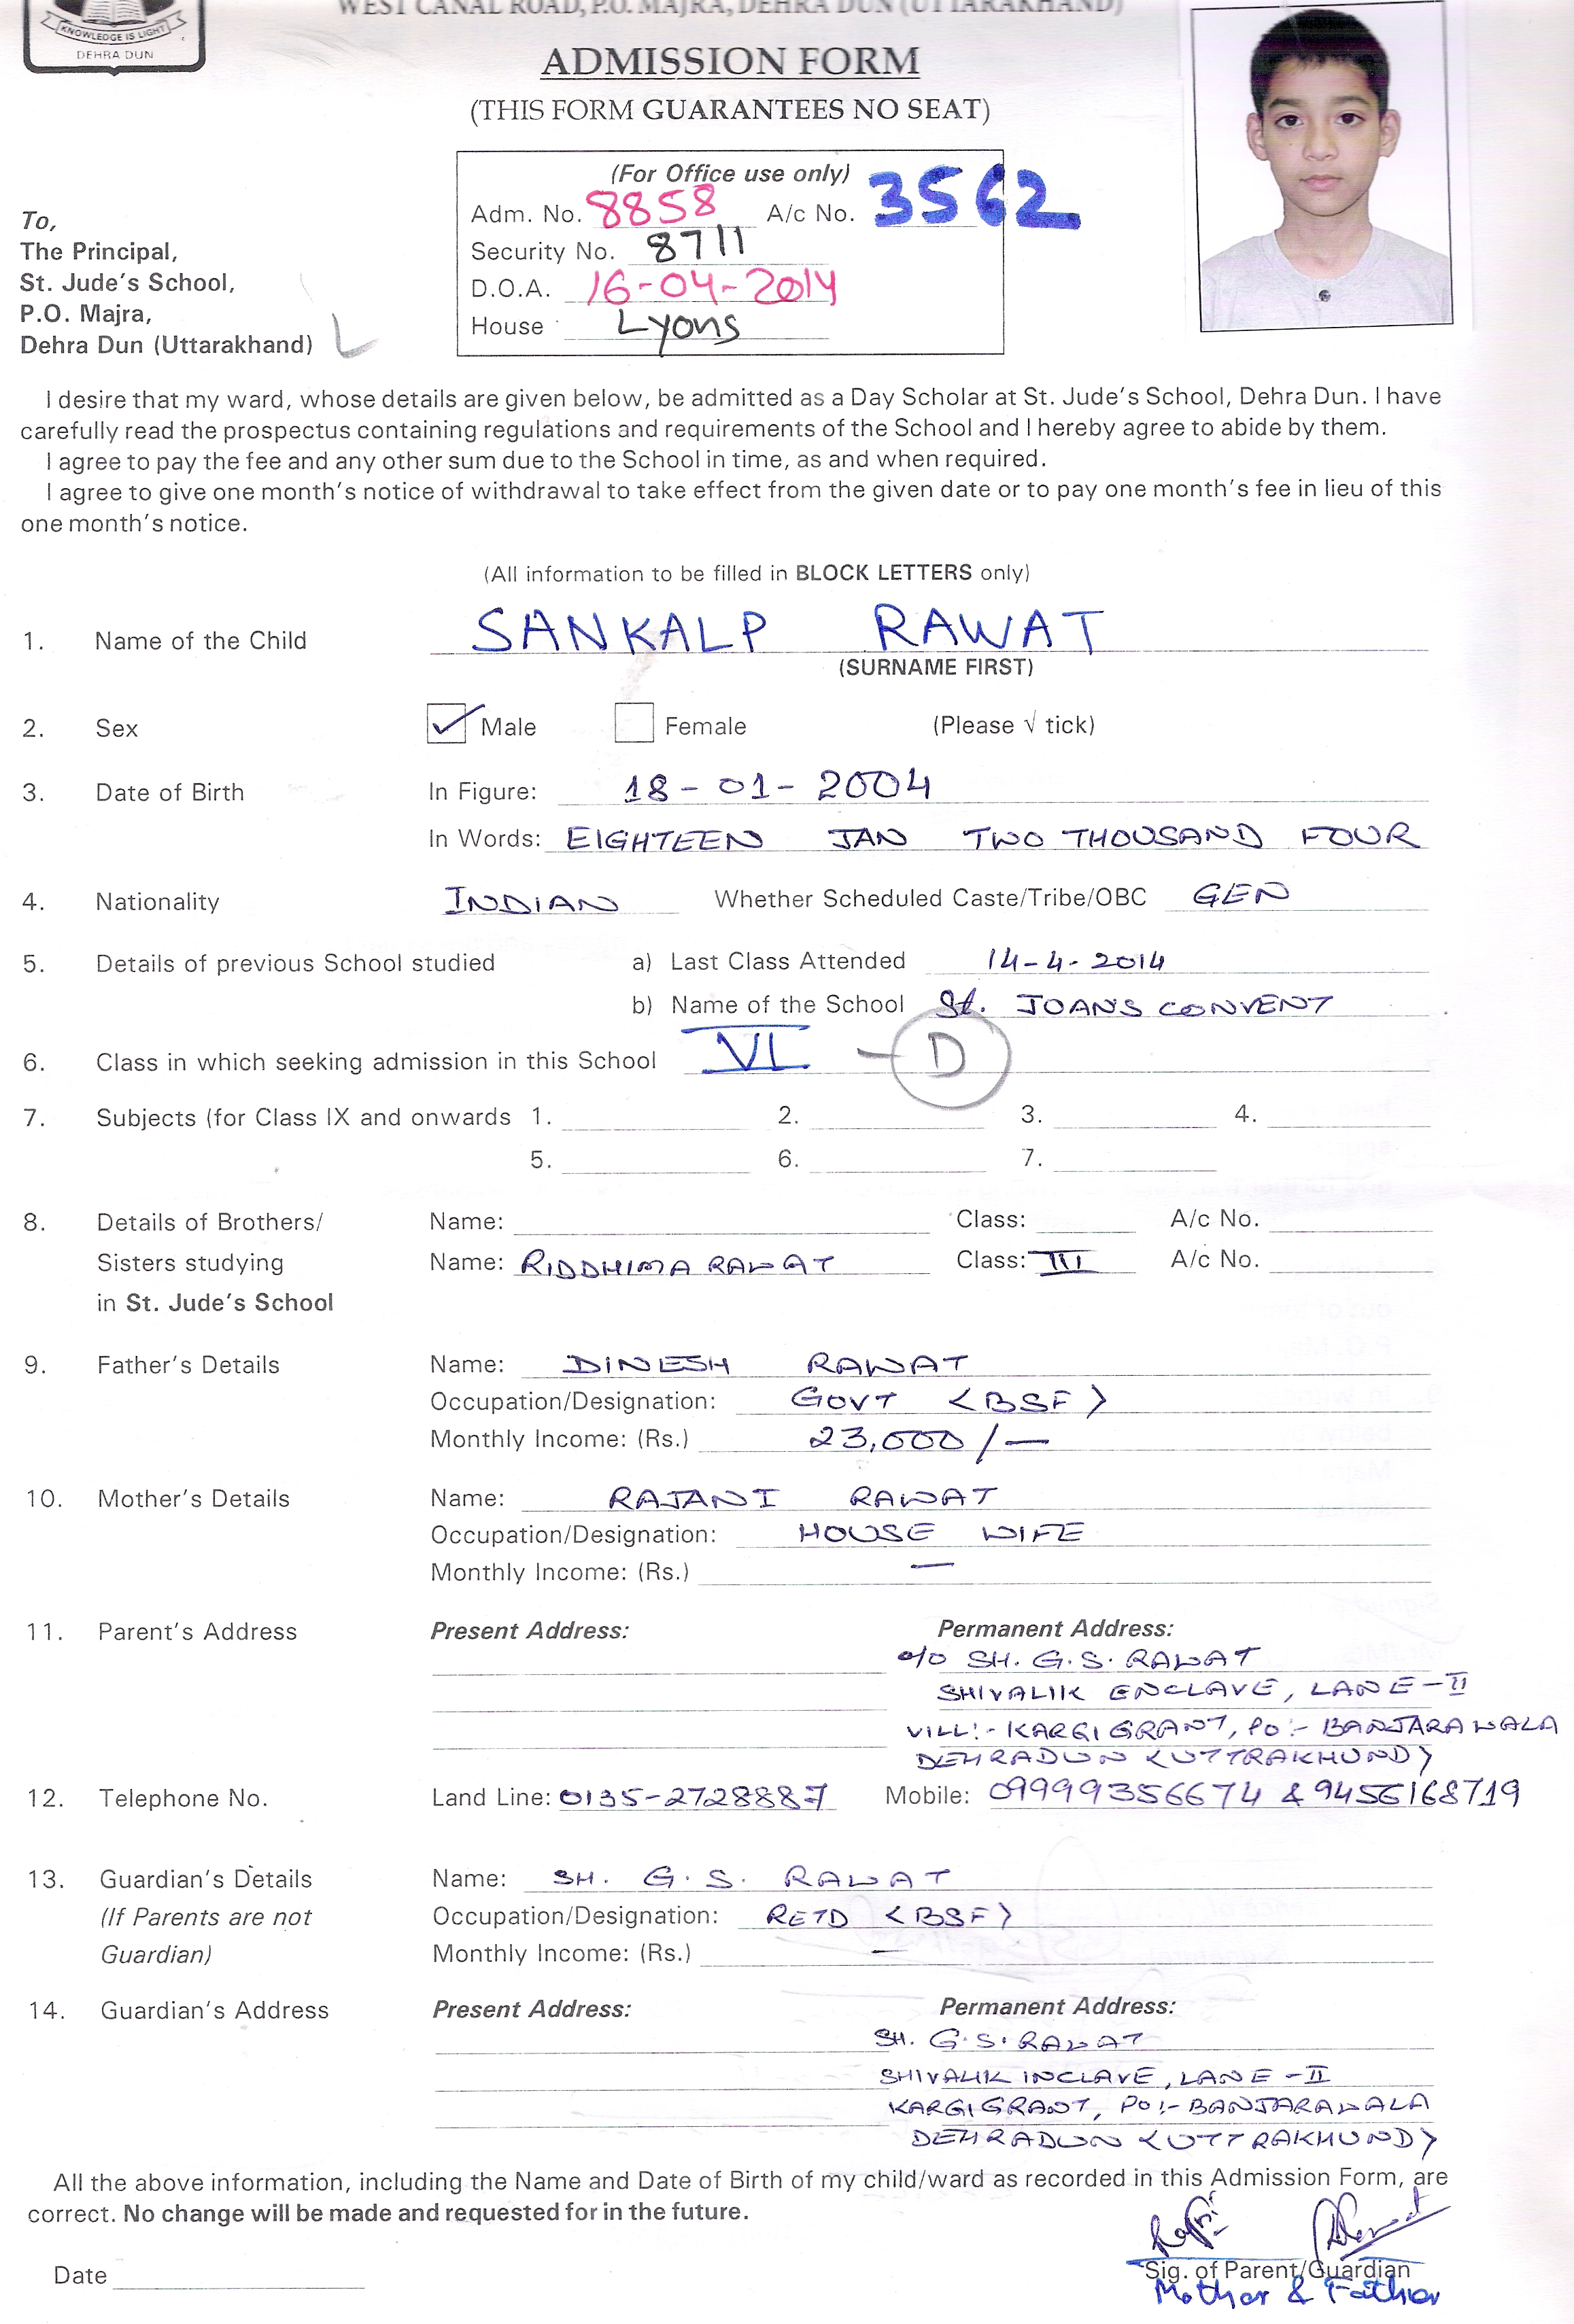 WEST CANAL ROAD, P.O. MAJRA, DEHRA DUN (UTTARAKHAND)
KNOWLEDGE IS LIGHT
DEHRA DUN
ADMISSION FORM
(THIS FORM GUARANTEES NO SEAT)
(For Office use only)
Adm. No. 8858 A/c No. 3562
Security No. 8711
D.O.A. 16-04-2014
House Lyons
To,
The Principal,
St. Jude's School,
P.O. Majra,
Dehra Dun (Uttarakhand)
I desire that my ward, whose details are given below, be admitted as a Day Scholar at St. Jude's School, Dehra Dun. I have
carefully read the prospectus containing regulations and requirements of the School and I hereby agree to abide by them.
I agree to pay the fee and any other sum due to the School in time, as and when required.
I agree to give one month's notice of withdrawal to take effect from the given date or to pay one month's fee in lieu of this
one month's notice.
(All information to be filled in BLOCK LETTERS only)
1. Name of the Child SANKALP RAWAT
(SURNAME FIRST)
2. Sex ✓ Male Female (Please √ tick)
3. Date of Birth In Figure: 18-01-2004
In Words: EIGHTEEN JAN TWO THOUSAND FOUR
4. Nationality INDIAN Whether Scheduled Caste/Tribe/OBC GEN
5. Details of previous School studied a) Last Class Attended 14-4-2014
b) Name of the School St. JOANS CONVENT
6. Class in which seeking admission in this School VI - D
7. Subjects (for Class IX and onwards 1. 2. 3. 4.
5. 6. 7.
8. Details of Brothers/ Name: Class: A/c No.
Sisters studying Name: RIDDHIMA RAWAT Class: III A/c No.
in St. Jude's School
9. Father's Details Name: DINESH RAWAT
Occupation/Designation: GOVT <BSF>
Monthly Income: (Rs.) 23,000/-
10. Mother's Details Name: RAJANI RAWAT
Occupation/Designation: HOUSE WIFE
Monthly Income: (Rs.) —
11. Parent's Address Present Address: Permanent Address:
c/o SH. G.S. RAWAT
SHIVALIK ENCLAVE, LANE-II
VILL:- KARGI GRANT, PO:- BANJARAWALA
DEHRADUN <UTTRAKHUND>
12. Telephone No. Land Line: 0135-2728887 Mobile: 09999356674 & 9456168719
13. Guardian's Details Name: SH. G.S. RAWAT
(If Parents are not Occupation/Designation: RETD <BSF>
Guardian) Monthly Income: (Rs.) —
14. Guardian's Address Present Address: Permanent Address:
SH. G.S. RAWAT
SHIVALIK INCLAVE, LANE-II
KARGI GRANT, PO:- BANJARAWALA
DEHRADUN <UTTRAKHUND>
All the above information, including the Name and Date of Birth of my child/ward as recorded in this Admission Form, are
correct. No change will be made and requested for in the future.
Date Sig. of Parent/Guardian
Mother & Father